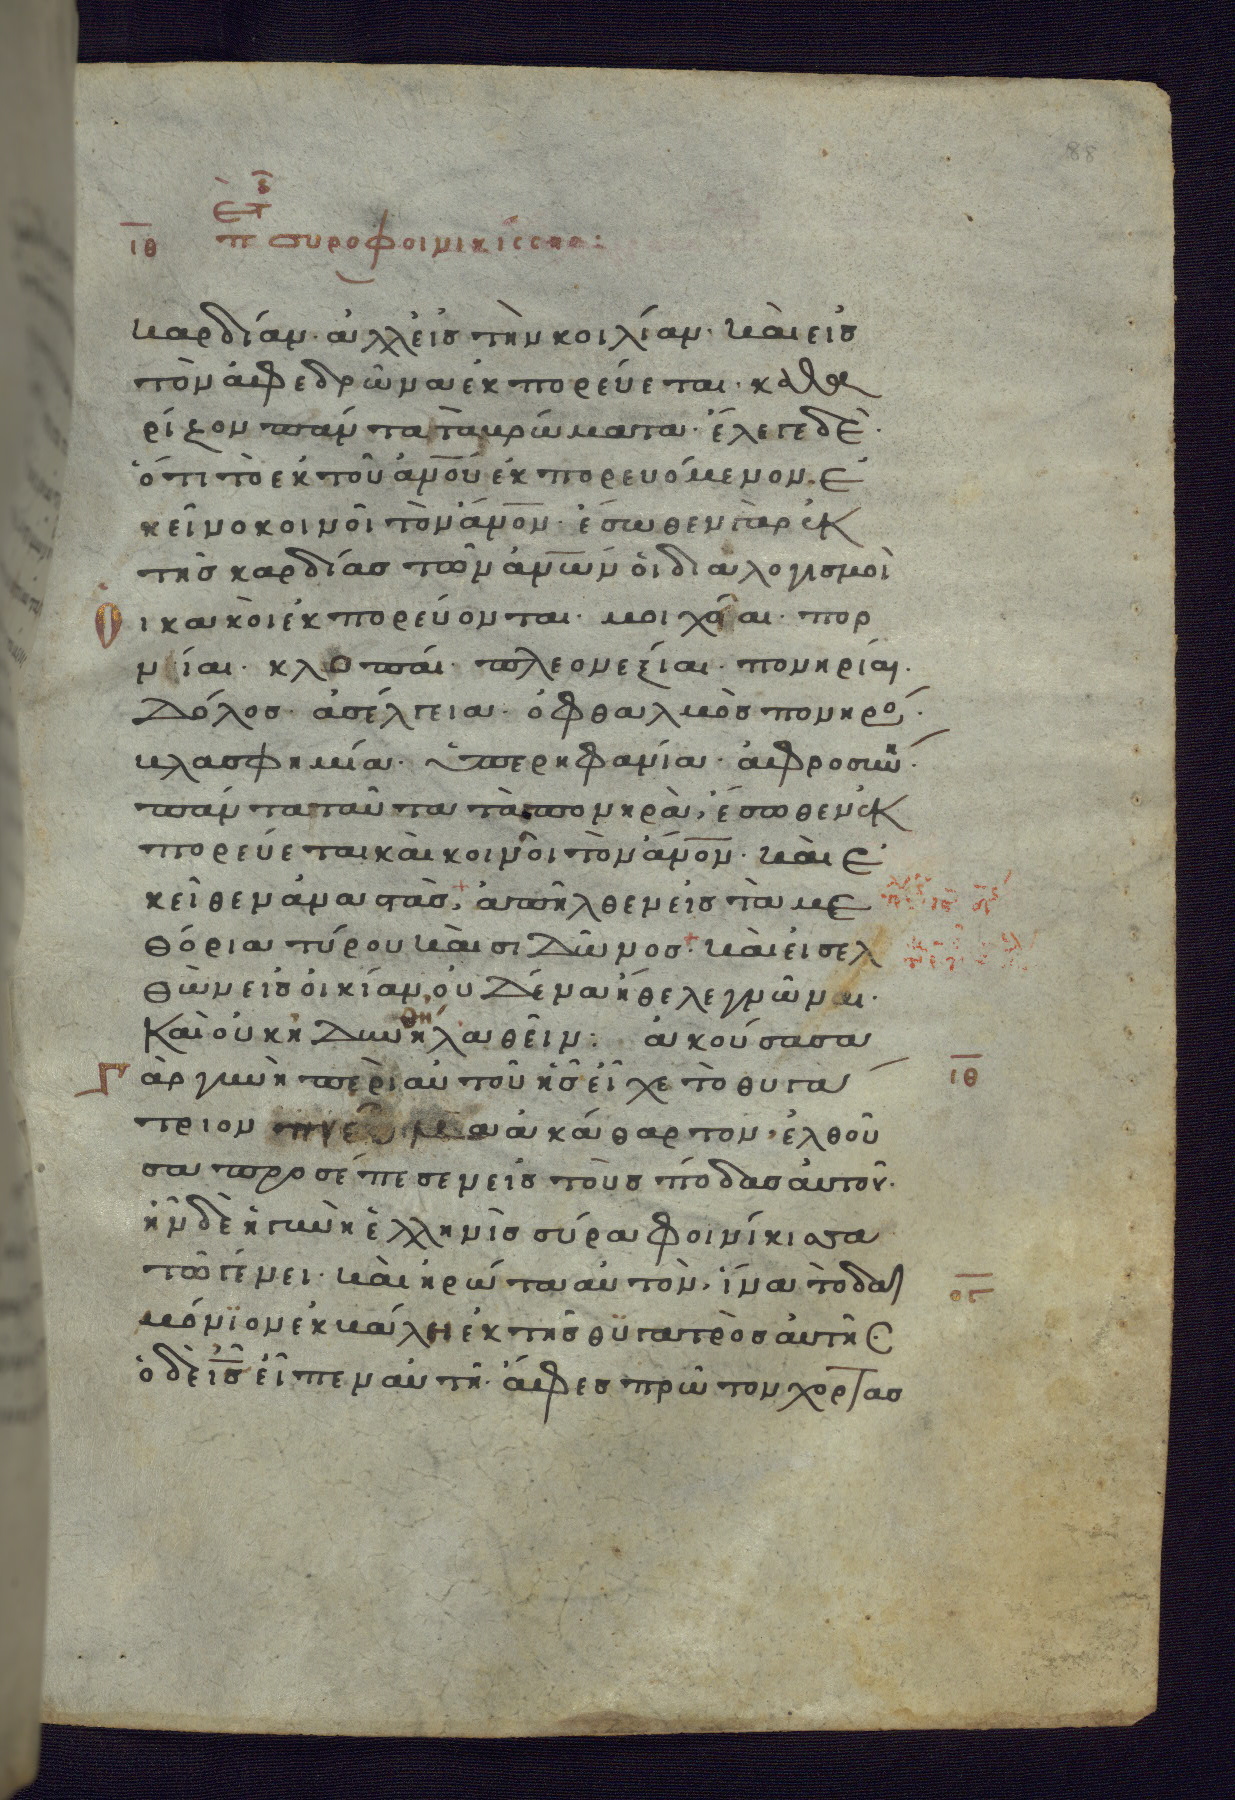 88
ιθ π συροφοινικίσσησ:
καρδίαν· ἀλλ εἰσ τὴν κοιλίαν· καὶ εἰσ
τὸν ἀφεδρῶνα ἐκπορεύεται· καθα
ρίζον πάντα τὰ βρώματα· ἔλεγε δὲ·
ὅτι τὸ ἐκ τοῦ ἀνου ἐκπορευόμενον· ἐ
κεῖνο κοινοῖ τὸν ἄνον· ἔσωθεν γὰρ ἐκ
τῆσ καρδίασ τῶν ἀνων οἱ διαλογισμοὶ
οἱ κακοὶ ἐκπορεύονται· μοιχεῖαι· πορ
νεῖαι· κλοπαί· πλεονεξίαι· πονηρίαι·
δόλοσ· ἀσέλγεια· ὀφθαλμὸσ πονηρό·
βλασφημία· ὑπερηφανία· ἀφροσύνη·
πάντα ταῦτα τὰ πονηρὰ, ἔσωθεν ἐκ
πορεύεται καὶ κοινοῖ τὸν ἄνον· καὶ ἐ
κεῖθεν ἀναστὰσ, ἀπῆλθεν εἰσ τὰ με
θόρια τύρου καὶ σιδῶνοσ· καὶ εἰσελ
θὼν εἰσ οἰκίαν, οὐδένα ἤθελε γνῶναι·
καὶ οὐκ ἠδυνήθη λαθεῖν: ἀκούσασα
γὰρ γυνὴ περὶ αὐτοῦ ἧσ εἶχε τὸ θυγά
ιθ
τριον πνεῦμα ἀκάθαρτον, ἐλθοῦ
σα προσέπεσεν εἰσ τοὺσ πόδασ αὐτοῦ·
ἦν δὲ ἡ γυνὴ ἑλληνὶσ σύρα φοινίκισσα
τῶ γένει· καὶ ἠρώτα αὐτὸν, ἵνα τὸ δαι
μόνϊον ἐκβάλη ἐκ τῆσ θυγατρὸσ αὐτῆς·
ὁ δὲ ισ εἶπεν αὐτῆ· ἄφεσ πρῶτον χορτασ